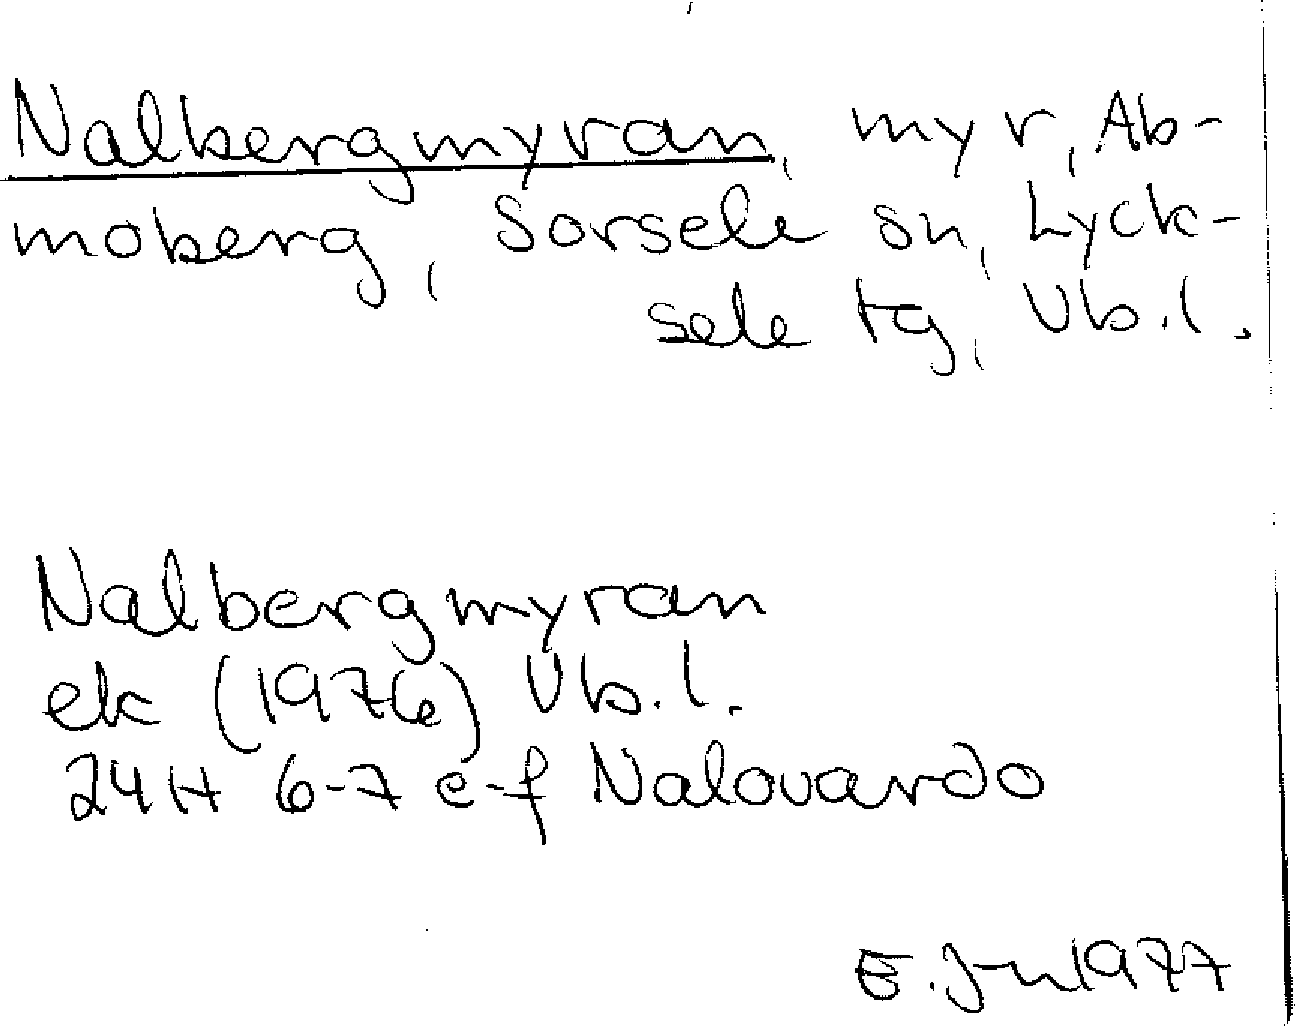 Nalbergmyran, myr, Ab-
moberg, Sorsele sn, Lyck-
sele tg, Vb.l.
Nalbergmyran
ek (1976) Vb.l.
24H 6-7 e-f Nalovardo
E. J-n 1977